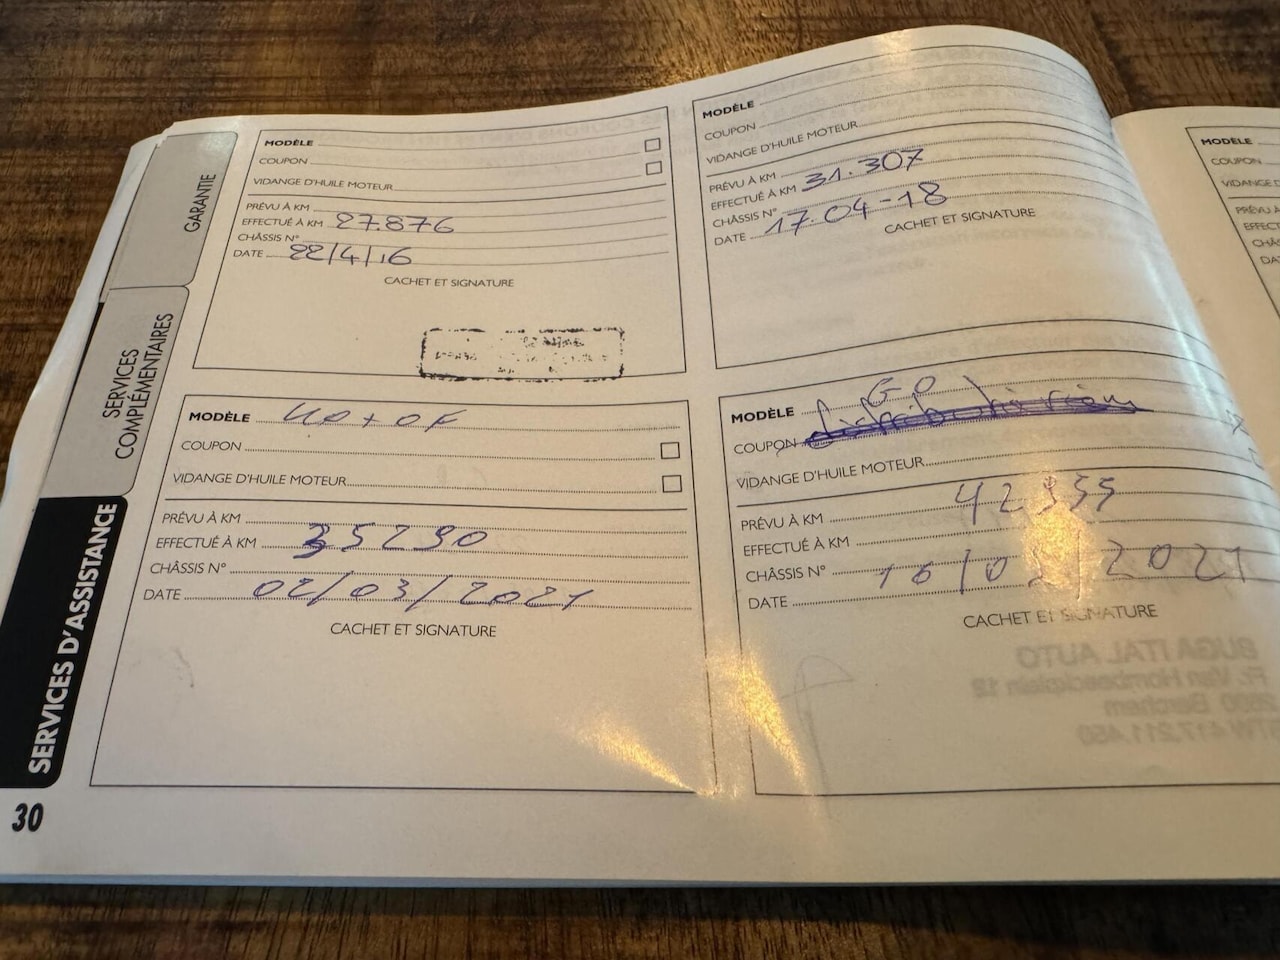 GARANTIE
SERVICES
COMPLÉMENTAIRES
SERVICES D'ASSISTANCE
30
MODÈLE
COUPON
VIDANGE D'HUILE MOTEUR
PRÉVU À KM
EFFECTUÉ À KM 27.876
CHÂSSIS N°
DATE 22/4/16
CACHET ET SIGNATURE
MODÈLE
COUPON
VIDANGE D'HUILE MOTEUR
PRÉVU À KM
EFFECTUÉ À KM 31.307
CHÂSSIS N°
DATE 17-04-18
CACHET ET SIGNATURE
MODÈLE
COUPON
VIDANGE D'HUILE MOTEUR
PRÉVU À KM
EFFECTUÉ À KM 35290
CHÂSSIS N°
DATE 02/03/2021
CACHET ET SIGNATURE
MODÈLE
COUPON
VIDANGE D'HUILE MOTEUR
PRÉVU À KM
EFFECTUÉ À KM
CHÂSSIS N°
DATE
CACHET ET SIGNATURE
BUGA ITAL AUTO
Fr. Van Hombeeckplein 12
2600 Berchem
BTW 417.211.450
MODÈLE
COUPON
VIDANGE D
PRÉVU À
EFFECT
CHÂ
DA